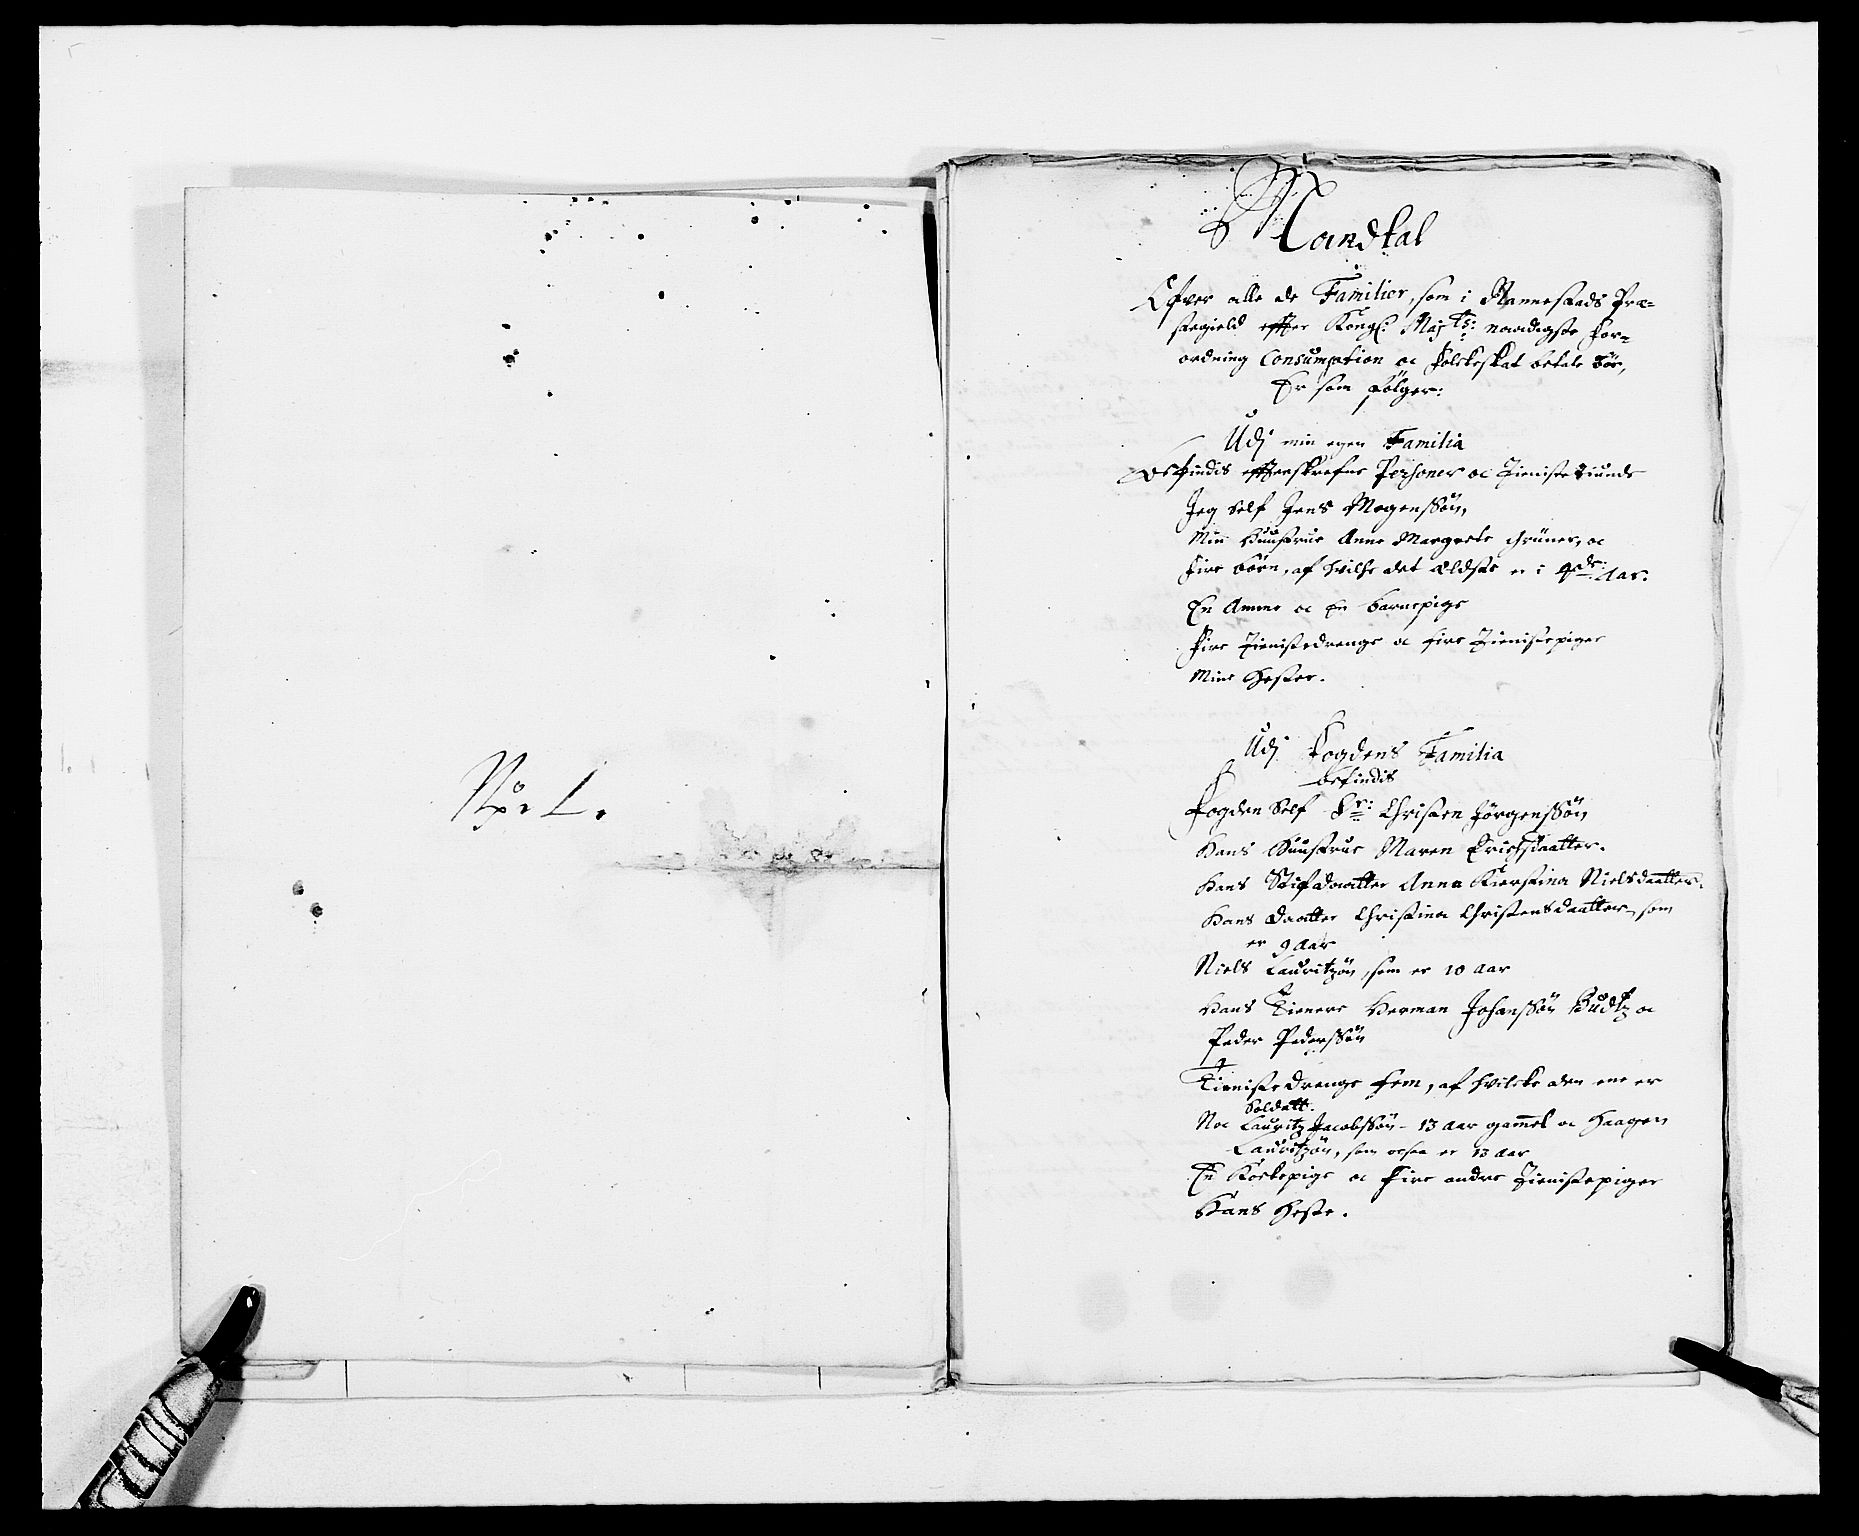 No: 1.
Mandtal
Ofver alle de Familier, som i Rannestads Præ=
stegield effter Kongl: Maj ts: naadigste For=
ordning Consumption oc Folckeskat betale bør,
Er som følger:
Udj min egen Familia
Befindis effterskrefne Personer oc Tieniste
Jeg Self Jens Mogenssøn,
Min Huustrue Anne Margrete Grüner, oc
Fire børn, af hvilke det Eldste er i 9de: Aar.
En Amme oc En barnepige
Fire Tienistedrenge oc fire Tienistepiger
Mine Hester.
Udj Fogdens Familia
befindis
Fogden Self Sr: Christen Jørgenssøn
Hans Huustrue Maren Erichsdaatter.
Hans Stifdaatter Anna Kierstina Nielsdaatter.
Hans Daatter Christina Christensdaatter, som
er 9 Aar
Niels Lauritzøn, som er 10 Aar
Hans Tienere Herman Johanssøn Budtz oc
Peder Pederssøn
Tienistedrenge fem, af hvilcke den ene er
Soldatt.
Noc Lauritz Jacobssøn - 13 Aar gammel oc Haagen
Lauritzøn, som ocsaa er 13 Aar
En Kockepige oc Fire andre Tienistepiger
Hans Heste.